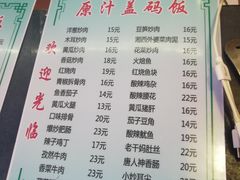 原汁盖码饭
欢迎光临
洋葱炒肉 15元
冰豆炒肉 15元
黄瓜炒肉 16元
香菇炒肉 16元
红烧肉 19元
青椒拆骨肉 16元
鱼香茄子 16元
黄瓜火腿 17元
口味排骨 20元
爆炒肥肠 21元
辣子鸡丁 21元
孜然牛肉 23元
香菜牛肉 23元
豆笋炒肉 16元
湘西外婆菜肉泥 16元
花菜炒肉 16元
火焙鱼 16元
红烧鱼块 16元
酸辣鸡杂 16元
酸辣腰花 17元
黄瓜猪肝 16元
茄子豆角 16元
酸辣鱿鱼 19元
老干妈肚丝 22元
唐人神香肠 20元